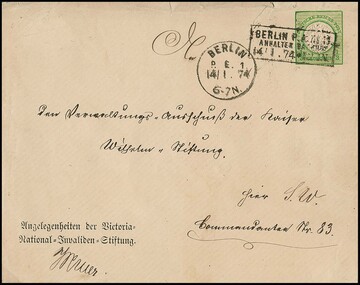 BERLIN P.
ANHALTER
14/1.74
BERLIN
P. E. 1
14/1.74
6-7N.
Den Verwaltungs-Ausschuß der Kaiser
Wilhelm-Stiftung.
hier S.W.
Commandanten Str. 83.
Angelegenheiten der Victoria-
National-Invaliden-Stiftung.